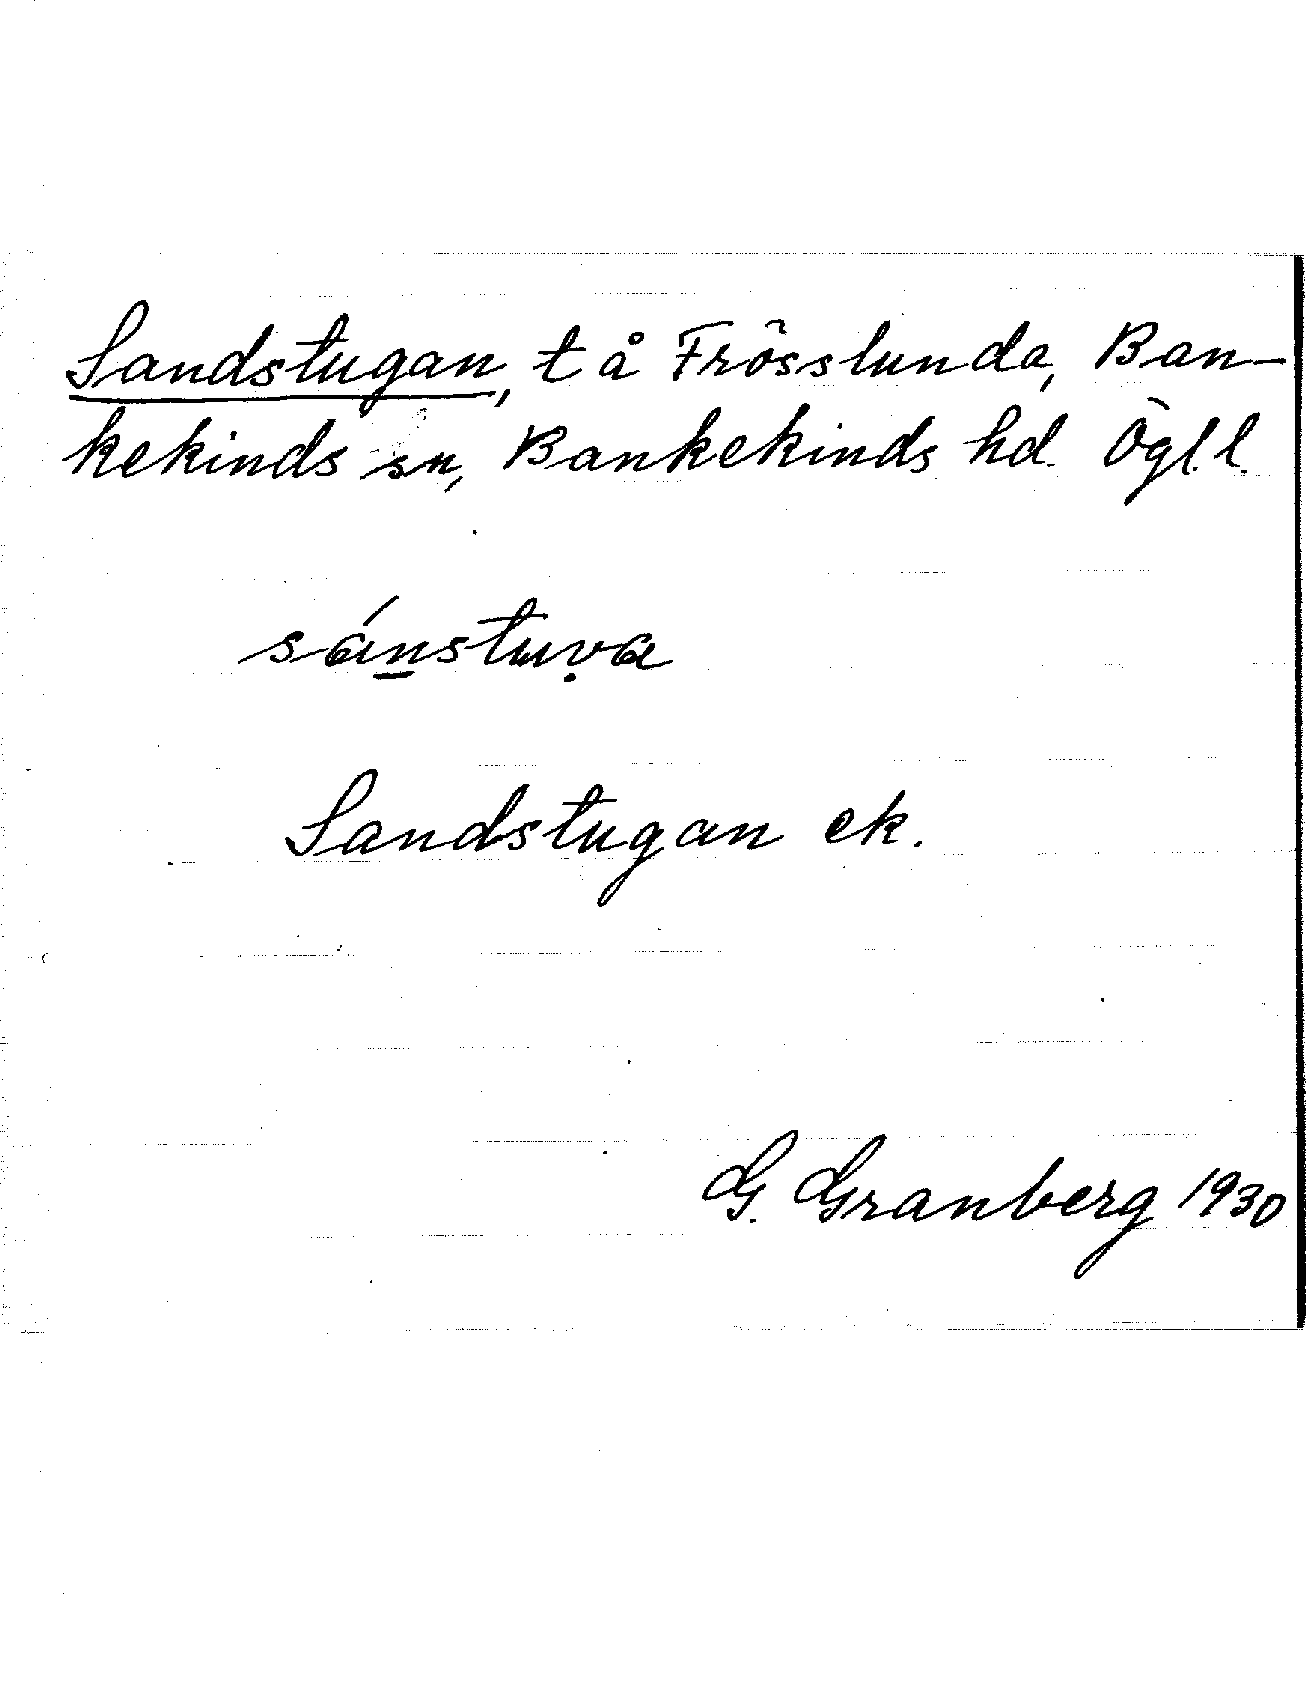 Sandstugan, t å Frösslunda, Ban-
kekinds sn, Bankekinds hd. Ögl. l.
sánstuva
Sandstugan ek.
G. Granberg 1930